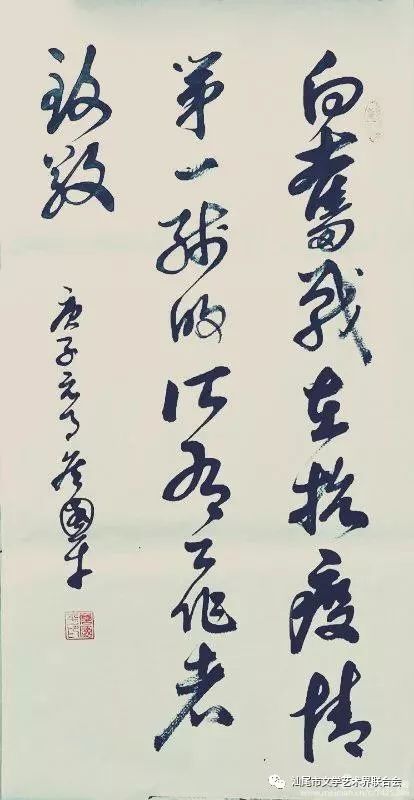 向奮戰在抗疫情
第一線的所有工作者
致敬
庚子元月 國平
汕尾市文学艺术界联合会